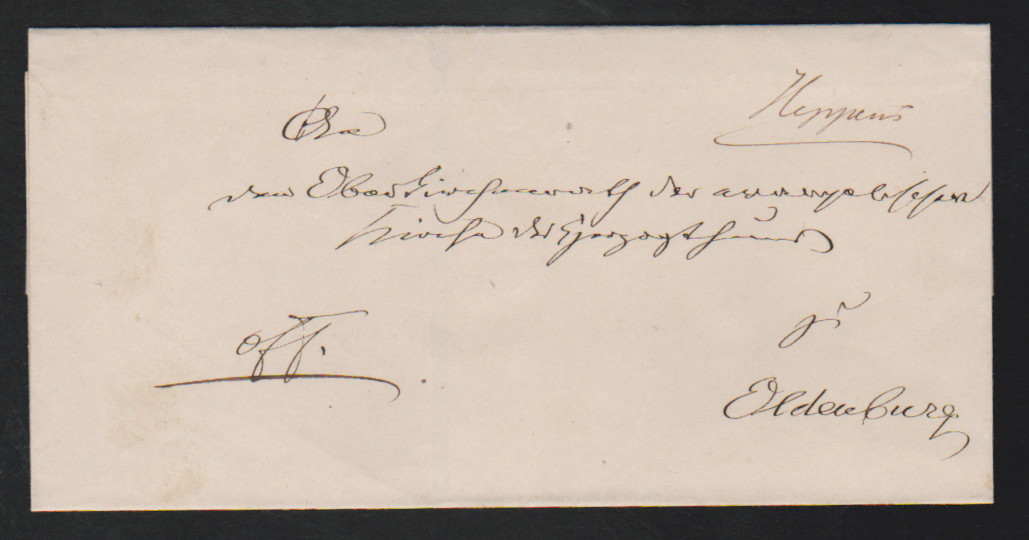 Heppens
An
den Oberkirchenrath der evangelischen
Kirche des Herzogthums
off.
zu
Oldenburg